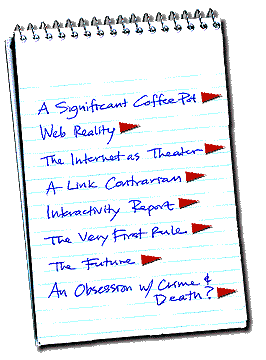 A Significant Coffee Pot
Web Reality
The Internet as Theater
A-Link Contrarian
Interactivity Report
The Very First Rule
The Future
An Obsession w/ Crime &
Death?